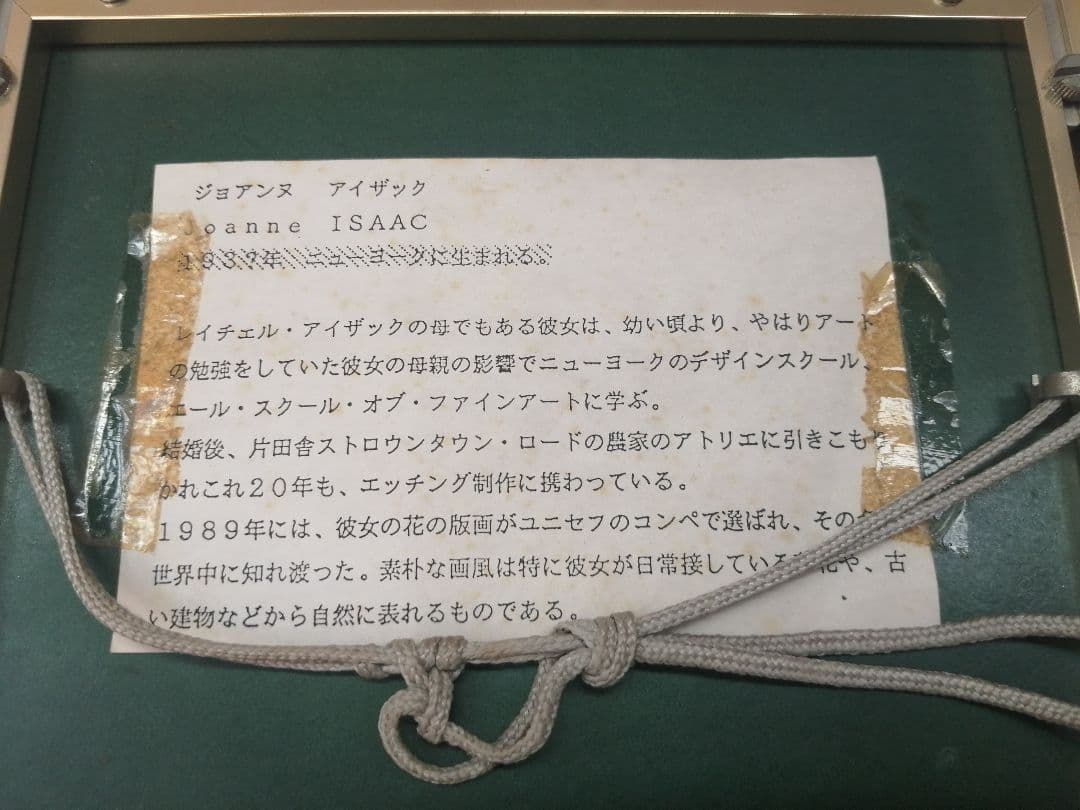 ジョアンヌ　アイザック
Joanne　ISAAC
1937年　ニューヨークに生まれる。
レイチェル・アイザックの母でもある彼女は、幼い頃より、やはりアート
の勉強をしていた彼女の母親の影響でニューヨークのデザインスクール、
エール・スクール・オブ・ファインアートに学ぶ。
結婚後、片田舎ストロウンタウン・ロードの農家のアトリエに引きこも
かれこれ20年も、エッチング制作に携わっている。
1989年には、彼女の花の版画がユニセフのコンペで選ばれ、その
世界中に知れ渡った。素朴な画風は特に彼女が日常接している花や、古
い建物などから自然に表れるものである。